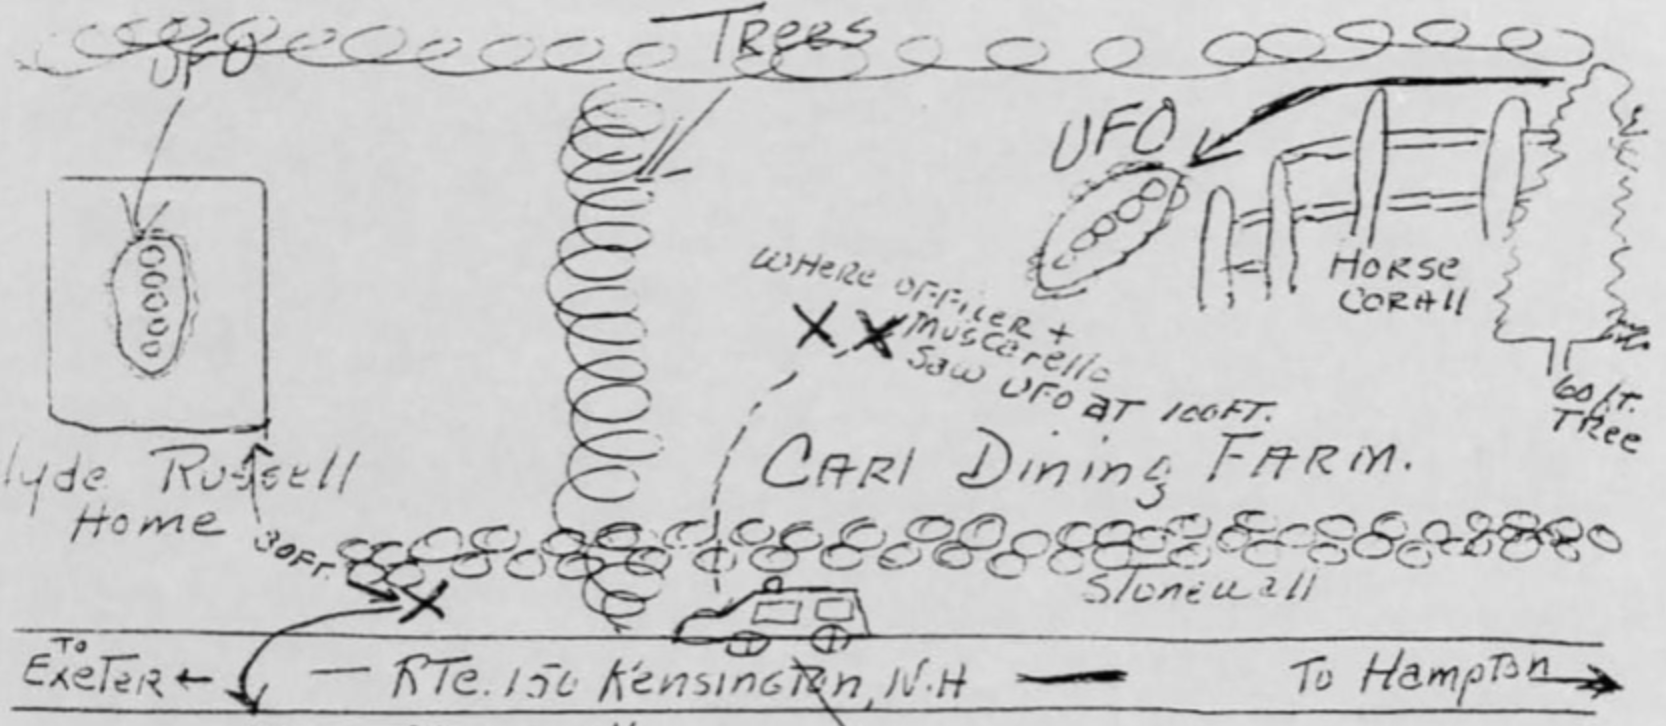 Trees
UFO
UFO
Horse
Corall
Where Officer +
Muscarello
Saw UFO at 100FT.
60 FT.
Tree
Carl Dining Farm.
lyde Russell
Home
30FT.
Stonewall
To
Exeter ← — RTe. 150 Kensington, N.H — To Hampton